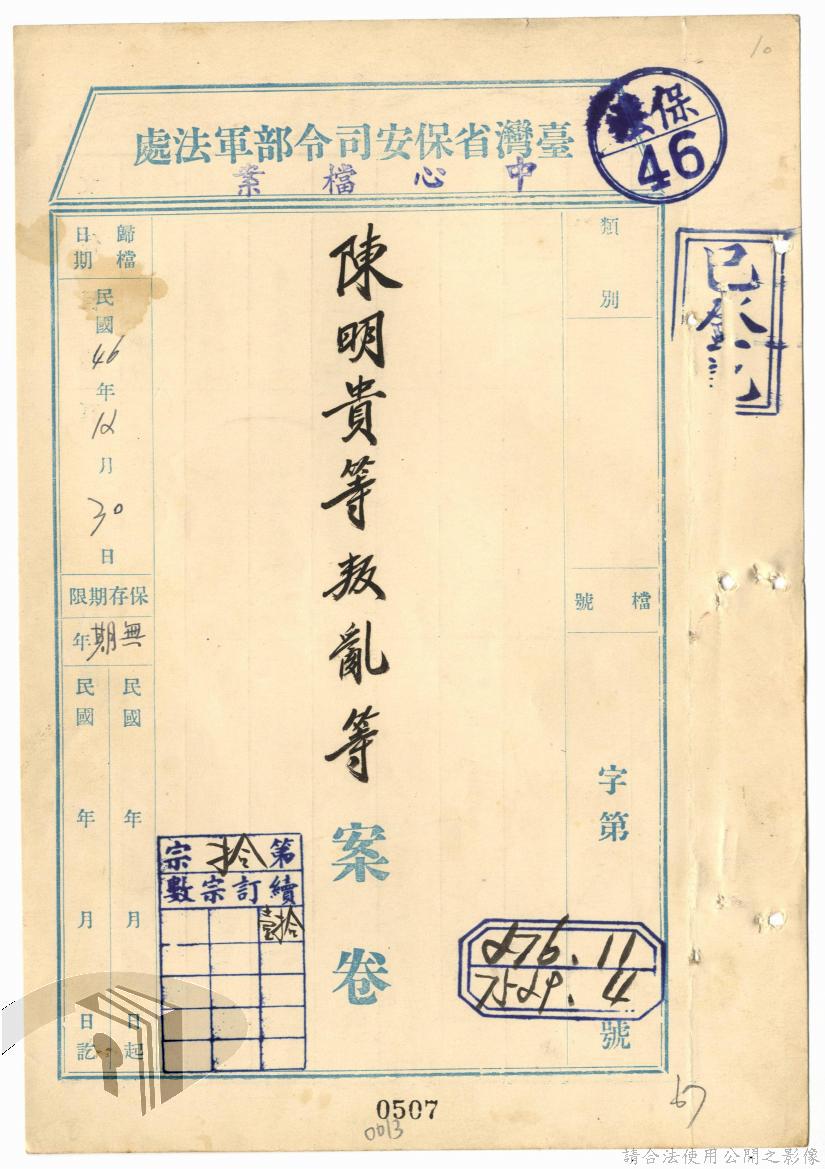 10
保
46
臺灣省保安司令部軍法處
中心檔案
已登記
類別
檔號
字第
號
276.11
7529.4
陳明貴等叛亂等
案卷
第拾宗
續訂宗數
拾壹
歸檔日期
民國46年12月30日
保存期限
無期年
民國 年 月 日起
民國 年 月 日訖
0507
0013
67
請合法使用公開之影像